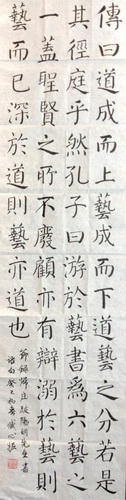 傳曰道成而上藝成而下道藝之分若是
其徑庭乎然孔子曰游於藝書為六藝之
一蓋聖賢之所不廢顧亦有辯溺於藝則
藝而已深於道則藝亦道也